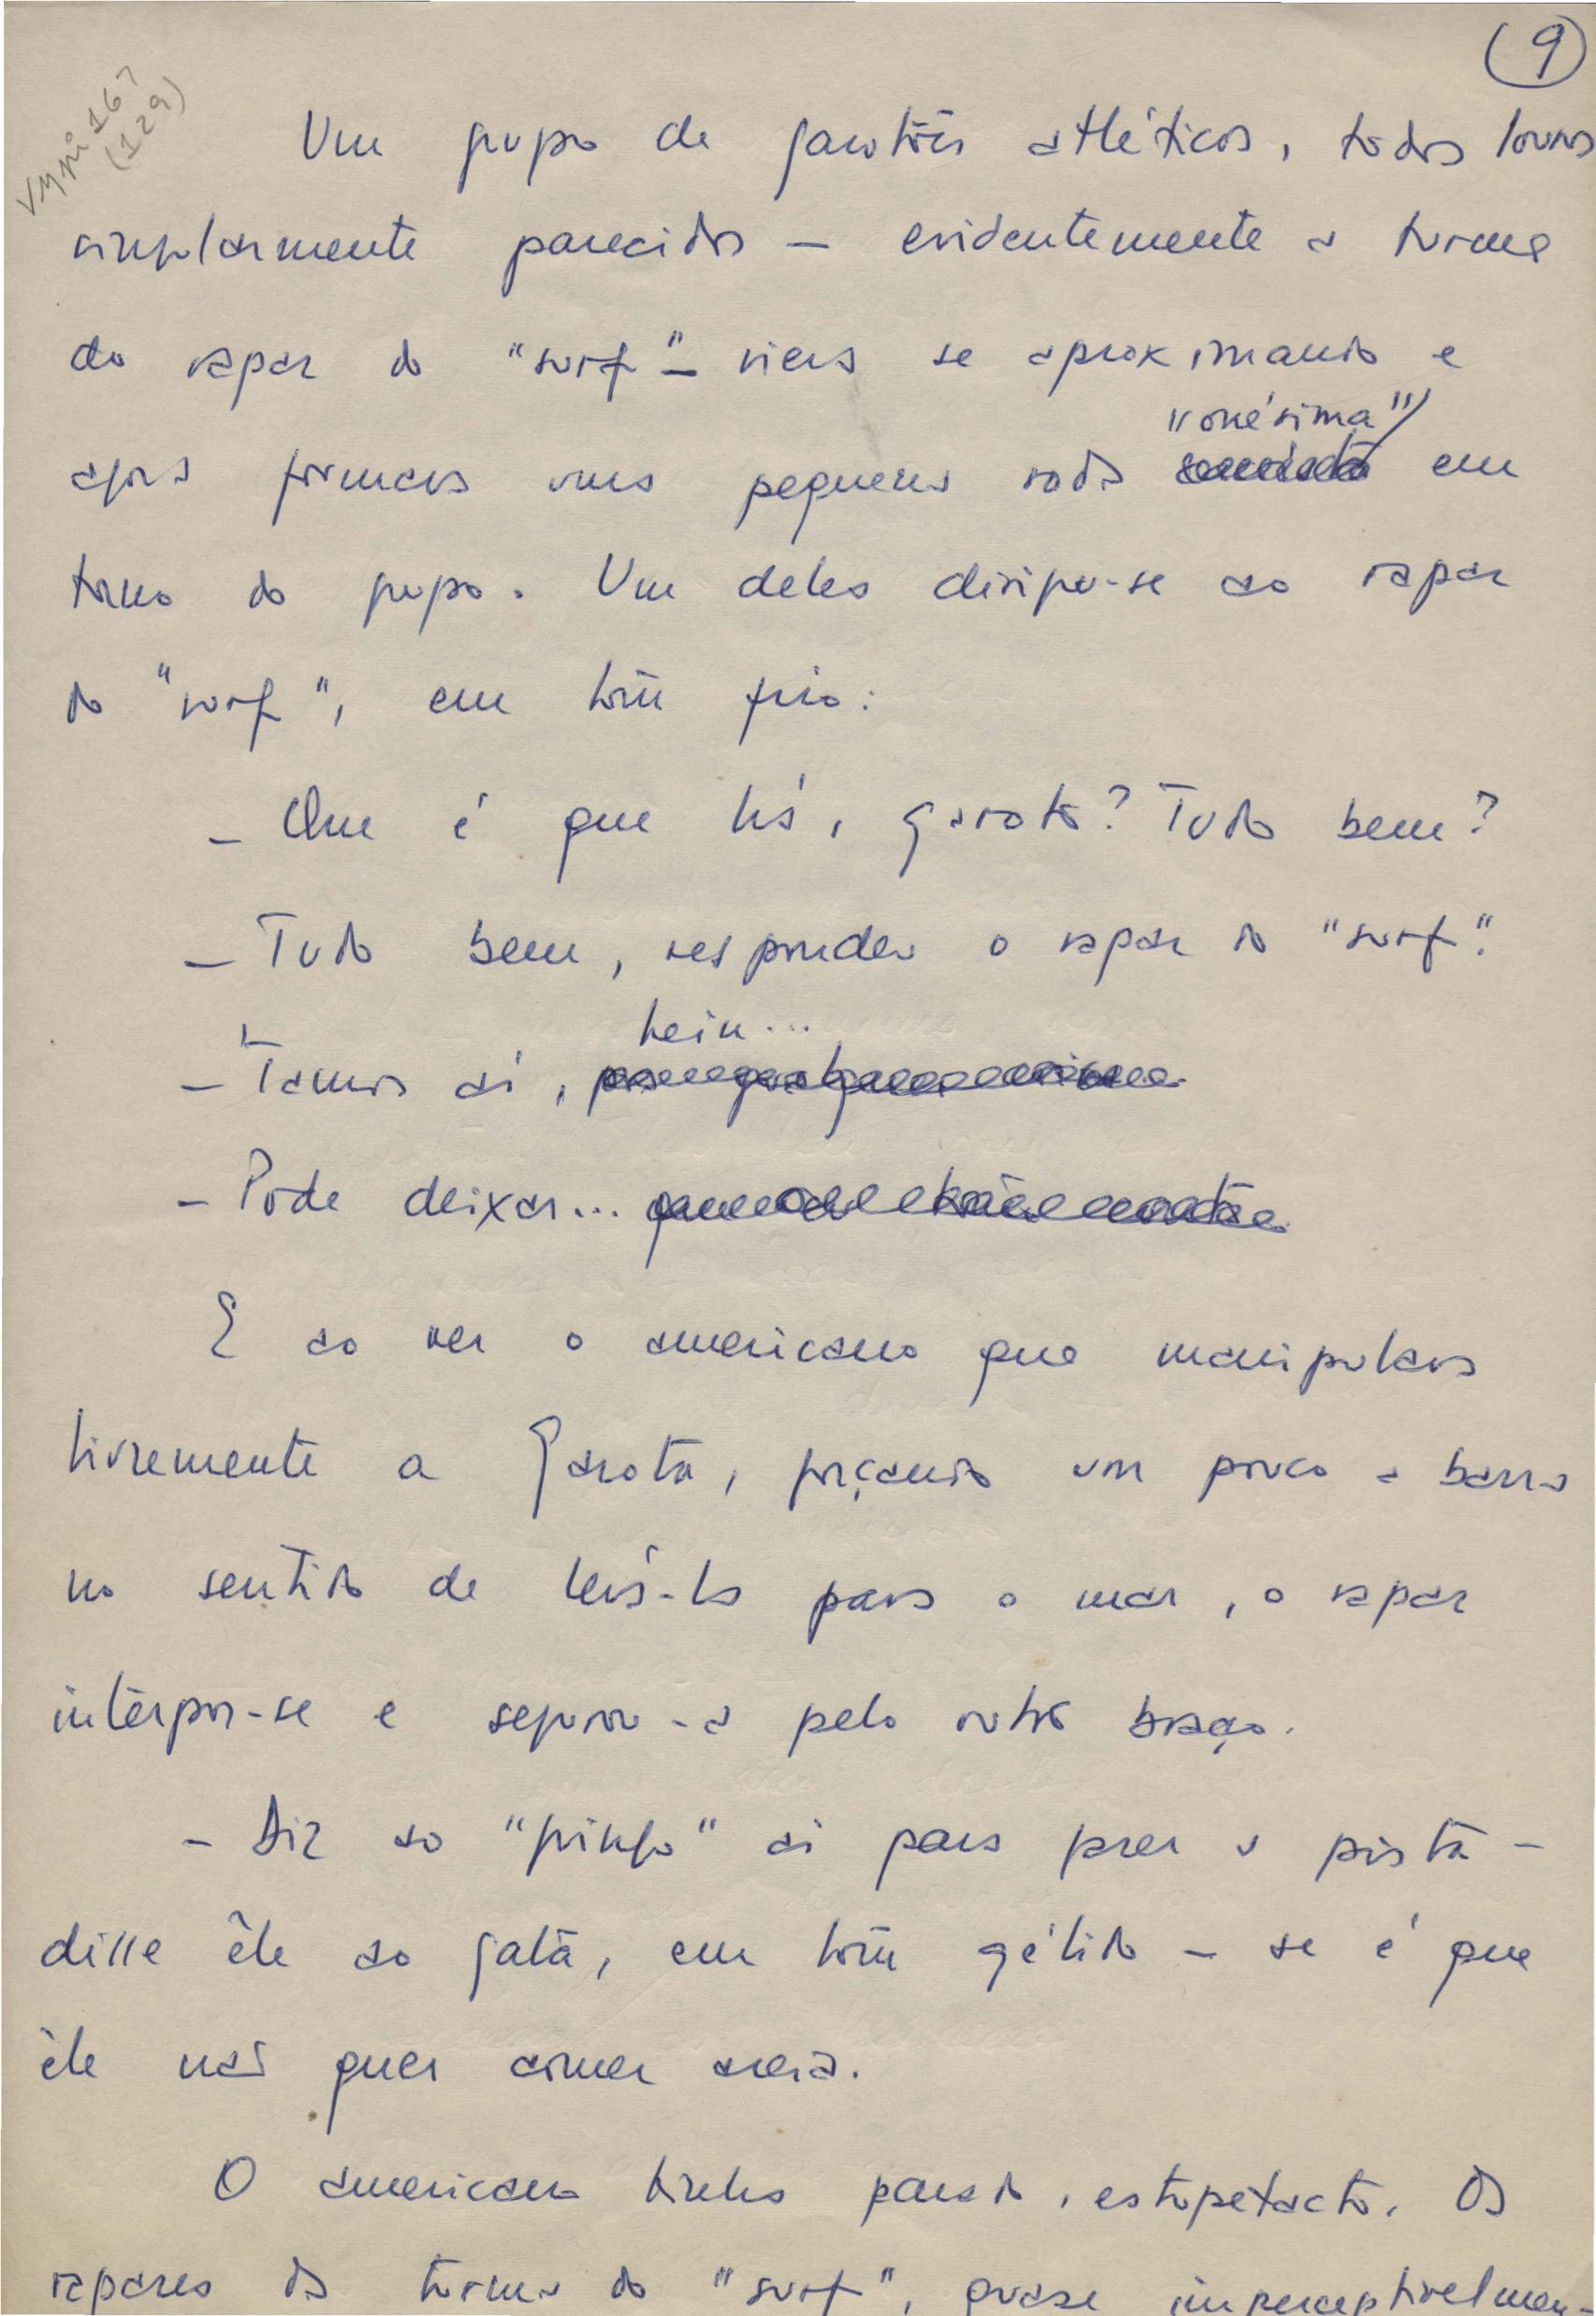 (9)
VMpi 167
(129)
Um grupo de garotões atléticos, todos louros
singularmente parecidos — evidentemente a turma
do rapaz do "surf" — viera se aproximando e
agora formava uma pequena roda "onésima" em
torno do grupo. Um deles dirigiu-se ao rapaz
do "surf", em tom frio:
— Que é que há, garoto? Tudo bem?
— Tudo bem, respondeu o rapaz do "surf".
— Tamos aí, hein...
— Pode deixar...
E ao ver o americano que manipulava
livremente a Garota, forçando um pouco a barra
no sentido de levá-la para o mar, o rapaz
interpos-se e segurou-a pelo outro braço.
— Diz ao "gringo" aí para prer a pista —
disse êle ao galã, em tom gélido — se é que
êle não quer comer areia.
O americano tinha parado, estupefacto. Os
rapazes da turma do "surf", quase imperceptivelmen-